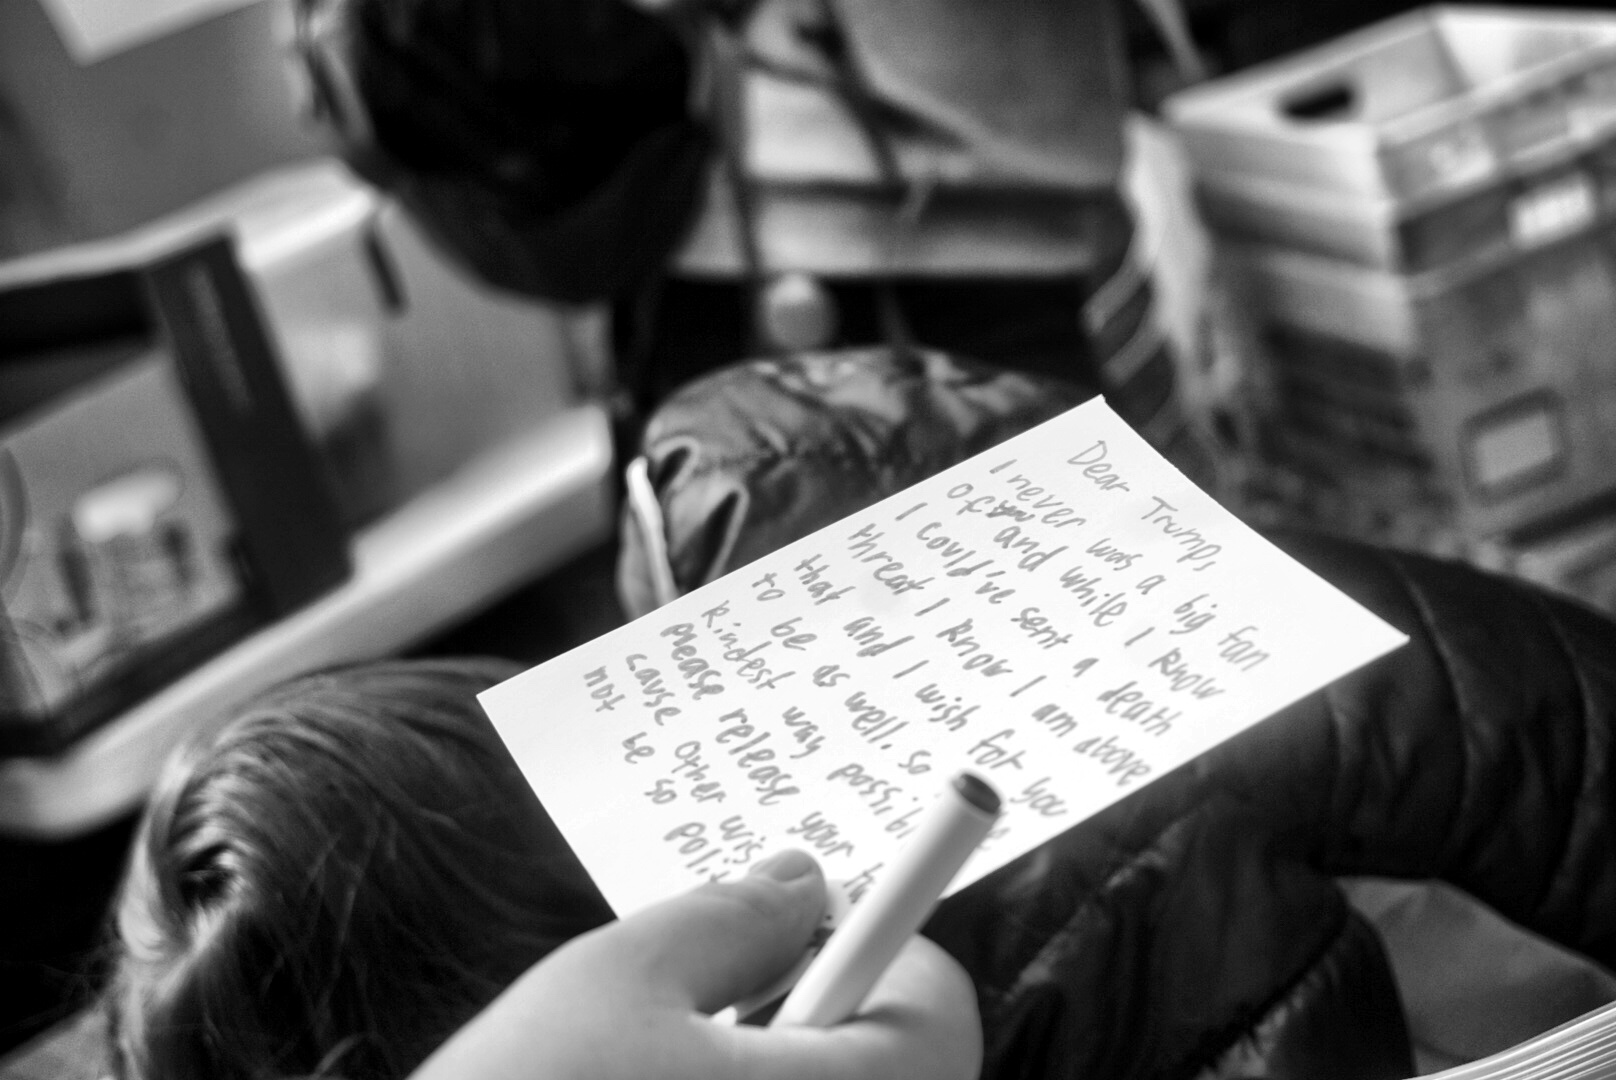 Dear Trump,
I never was a big fan
of you and while I know
I could've sent a death
threat I know I am above
that and I wish for you
to be as well. so
kindest way possible
please release your
cause other wis
not be so polit